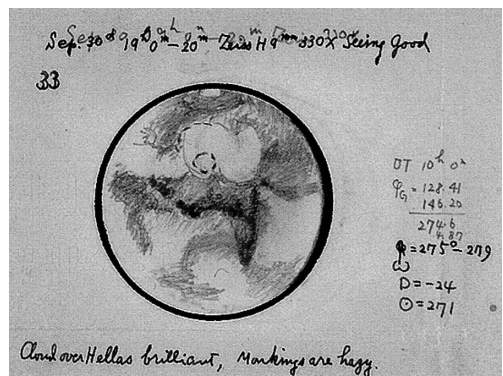 Sep. 30 19h 0m - 20m Zeiss H 9mm 330X Seeing Good
33
UT 10h 0m
φG = 128.41
146.20
274.6
4.87
ω = 275° - 279
D = -24
⊙ = 271
Cloud over Hellas brilliant, Markings are hazy.